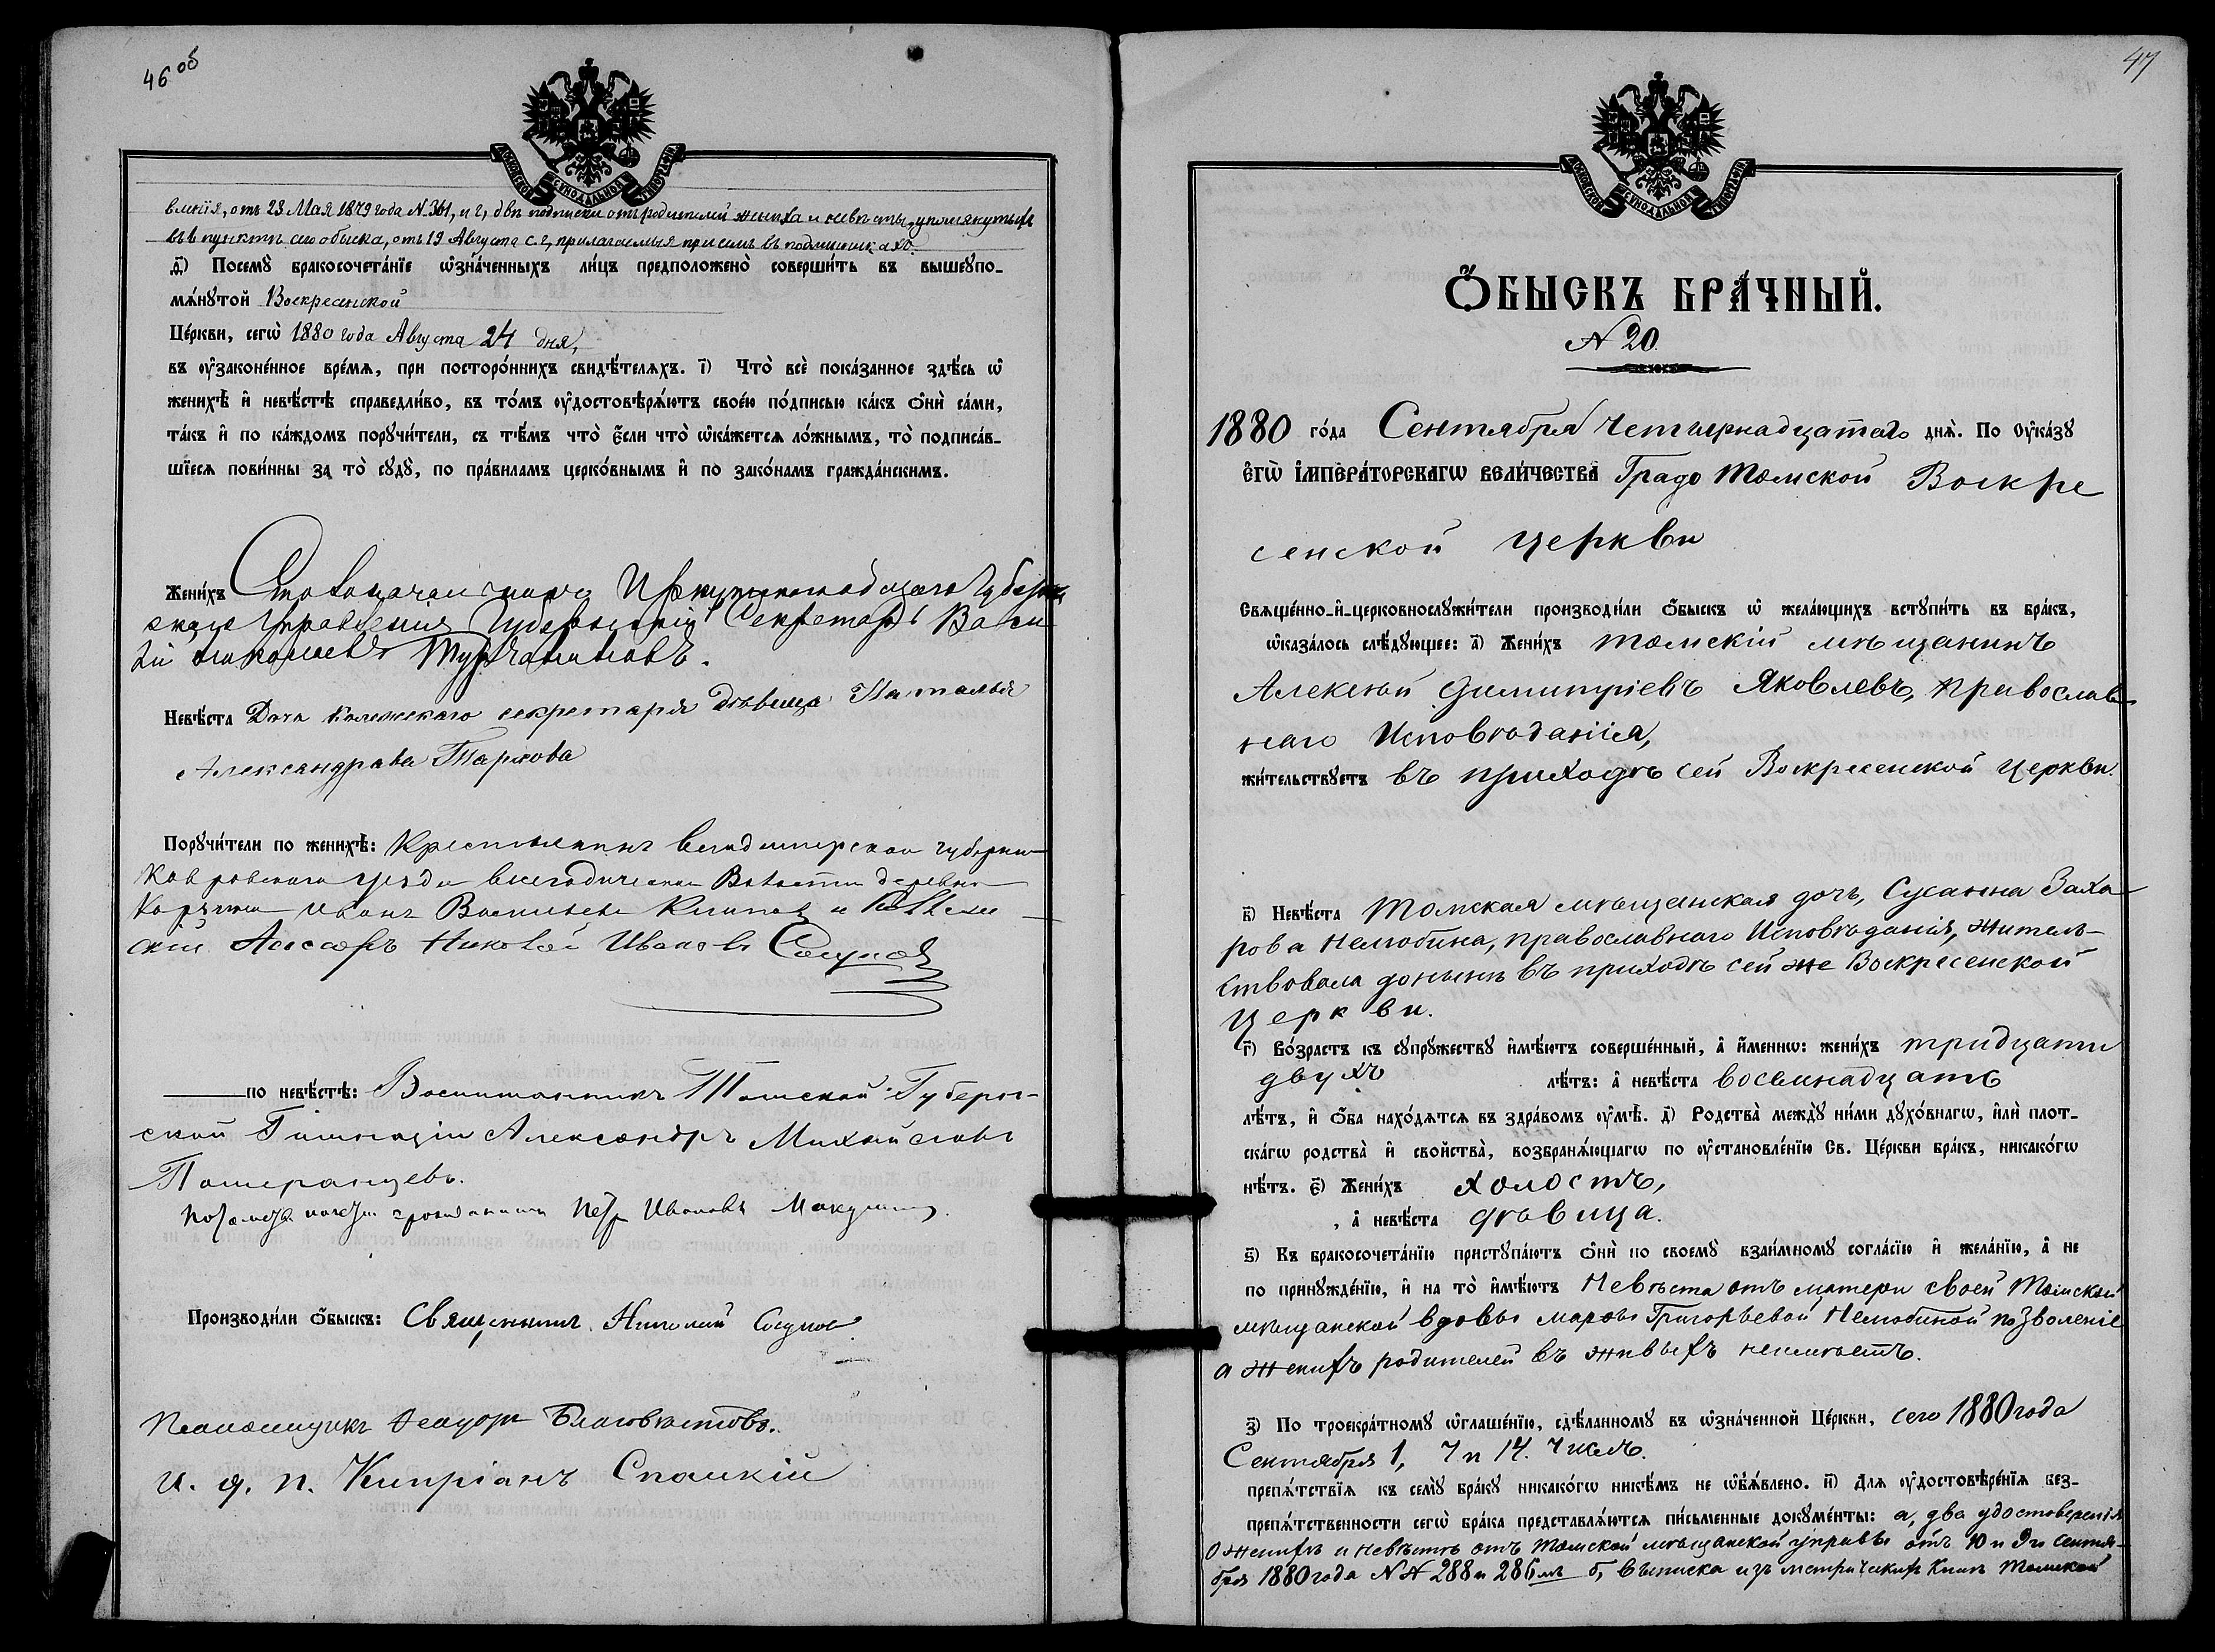 46 об
МОСКОВСКОЙ СУНОДАЛЬНОЙ ТИПОГРАФІИ
вленія, отъ 23 Мая 1879 года N. 361, и г, двѣ подписки отъ родителей жениха и невѣсты, упомянутыхъ
въ в пунктѣ сего обыска, отъ 19 Августа с. г, прилагаемыя при семъ въ подлинникахъ.
д҃) Посемꙋ̀ бракосочета́нїе ѡ҆зна́ченныхъ ли́цъ предположено̀ соверши́ть въ вышеꙋпо-
мѧ́нꙋтой Воскресенской
Це́ркви, сегѡ̀ 1880 года Августа 24 дня,
въ ᲂу҆законе́нное вре́мѧ, при посторо́ннихъ свидѣ́телѧхъ. і҃) Что̀ всѐ пока́занное здѣ́сь ѡ҆
женихѣ̀ и҆ невѣ́стѣ справедли́во, въ то́мъ ᲂу҆достовѣрѧ́ютъ свое́ю по́дписью ка́къ ѻ҆нѝ са́ми,
та́къ и҆ по ка́ждомъ порꙋчи́тели, съ тѣ́мъ что̀ є҆́сли что̀ ѡ҆ка́жетсѧ ло́жнымъ, то̀ подписа́в-
шїесѧ пови́нны за то̀ сꙋдꙋ̀, по пра́виламъ церко́внымъ и҆ по зако́намъ гражда́нскимъ.
Жени́хъ Столоначальникъ Иркутскаго общаго Губерн
скаго Управленія Губернскій Секретарь Васи
лій Турчаниновъ.
Невѣ́ста Дочь Колежскаго секретаря дѣвица Наталья
Александрова Таркова
Порꙋчи́тели по женихѣ̀: Крестьянинъ Владимирской губерніи
Ковровскаго уѣзда Всегодической Волости деревни
Иванъ Васильевъ Клиповъ и Коллеж
скій Асесоръ Николай Ивановъ Сосуновъ
по невѣ́стѣ: Воспитанникъ Томской Губерн-
ской Гимназіи Александръ Михайловъ
Померанцевъ.
Потомств. почетн. гражданинъ Петр Ивановъ Макушинъ.
Производи́ли ѻ҆́быскъ: Священникъ Николай Сосуновъ
Псаломщикъ Феодоръ Благовѣстовъ.
и. д. п. Кипріанъ Спаский
47
МОСКОВСКОЙ СУНОДАЛЬНОЙ ТИПОГРАФІИ
Ѻ҆́БЫСКЪ БРА́ЧНЫЙ.
N 20.
1880 го́да Сентября четырнадцатаго днѧ̀. По Оу҆ка́зꙋ
Є҆ГѠ̀ І҆МПЕРА́ТОРСКАГѠ ВЕЛИ́ЧЕСТВА Градо Томской Воскре
сенской церкви
Свѧще́нно-и҆-церковнослꙋжи́тели производи́ли ѻ҆́быскъ ѡ҆ жела́ющихъ встꙋпи́ть въ бра́къ,
ѡ҆каза́лось слѣ́дꙋющее: а҃) Жени́хъ томскій мѣщанинъ
Алексѣй Димитріевъ Яковлевъ, православ
наго Исповѣданія,
жи́тельствꙋетъ въ приходѣ сей Воскресенской церкви.
в҃) Невѣ́ста Томская мѣщанская дочь, Сусанна Заха
рова Нелюбина, православнаго Исповѣданія, житель-
ствовала донынѣ въ приходѣ сей же Воскресенской
Церкви.
г҃) Во́зрастъ къ сꙋпрꙋ́жествꙋ и҆мѣ́ютъ соверше́нный, а҆ и҆́меннѡ: жени́хъ тридцати
двухъ лѣ́тъ: а҆ невѣ́ста восемнадцать
лѣ́тъ, и҆ ѻ҆́ба нахо́дѧтсѧ въ здра́вомъ ᲂу҆мѣ̀. д҃) Родства̀ междꙋ̀ ни́ми дꙋхо́внагѡ, и҆лѝ плот-
ска́гѡ родства̀ и҆ свойства̀, возбранѧ́ющагѡ по ᲂу҆становле́нїю Св. Це́ркви бра́къ, никако́гѡ
нѣ́тъ. є҃) Жени́хъ холостъ,
, а҆ невѣ́ста дѣвица.
ѕ҃) Къ бракосочета́нїю пристꙋпа́ютъ ѻ҆нѝ по своемꙋ̀ взаи́мномꙋ согла́сїю и҆ жела́нїю, а҆ не
по принꙋжде́нїю, и҆ на то̀ и҆мѣ́ютъ Невѣста отъ матери своей Томской
мѣщанской вдовы Марѳы Григорьевой Нелюбиной позволеніе
а женихъ родителей въ живыхъ неимѣетъ.
з҃) По троекра́тномꙋ ѡ҆глаше́нїю, сдѣ́ланномꙋ въ ѡ҆зна́ченной Це́ркви, сего 1880 года
Сентября 1, 7 и 14. числъ.
препѧ́тствїѧ къ семꙋ̀ бра́кꙋ никако́гѡ никѣ́мъ не ѡ҆б̾ѧ́влено. и҃) Длѧ ᲂу҆достовѣре́нїѧ без-
препѧ́тственности сегѡ̀ бра́ка представлѧ́ютсѧ пи́сьменные докꙋме́нты: а, два удостоверенія
о женихѣ и невѣстѣ отъ Томской мѣщанской управы отъ 10 и 9го сентя-
бря 1880 года N N 288 и 286мъ б, выписка изъ метрическихъ Книгъ Томской